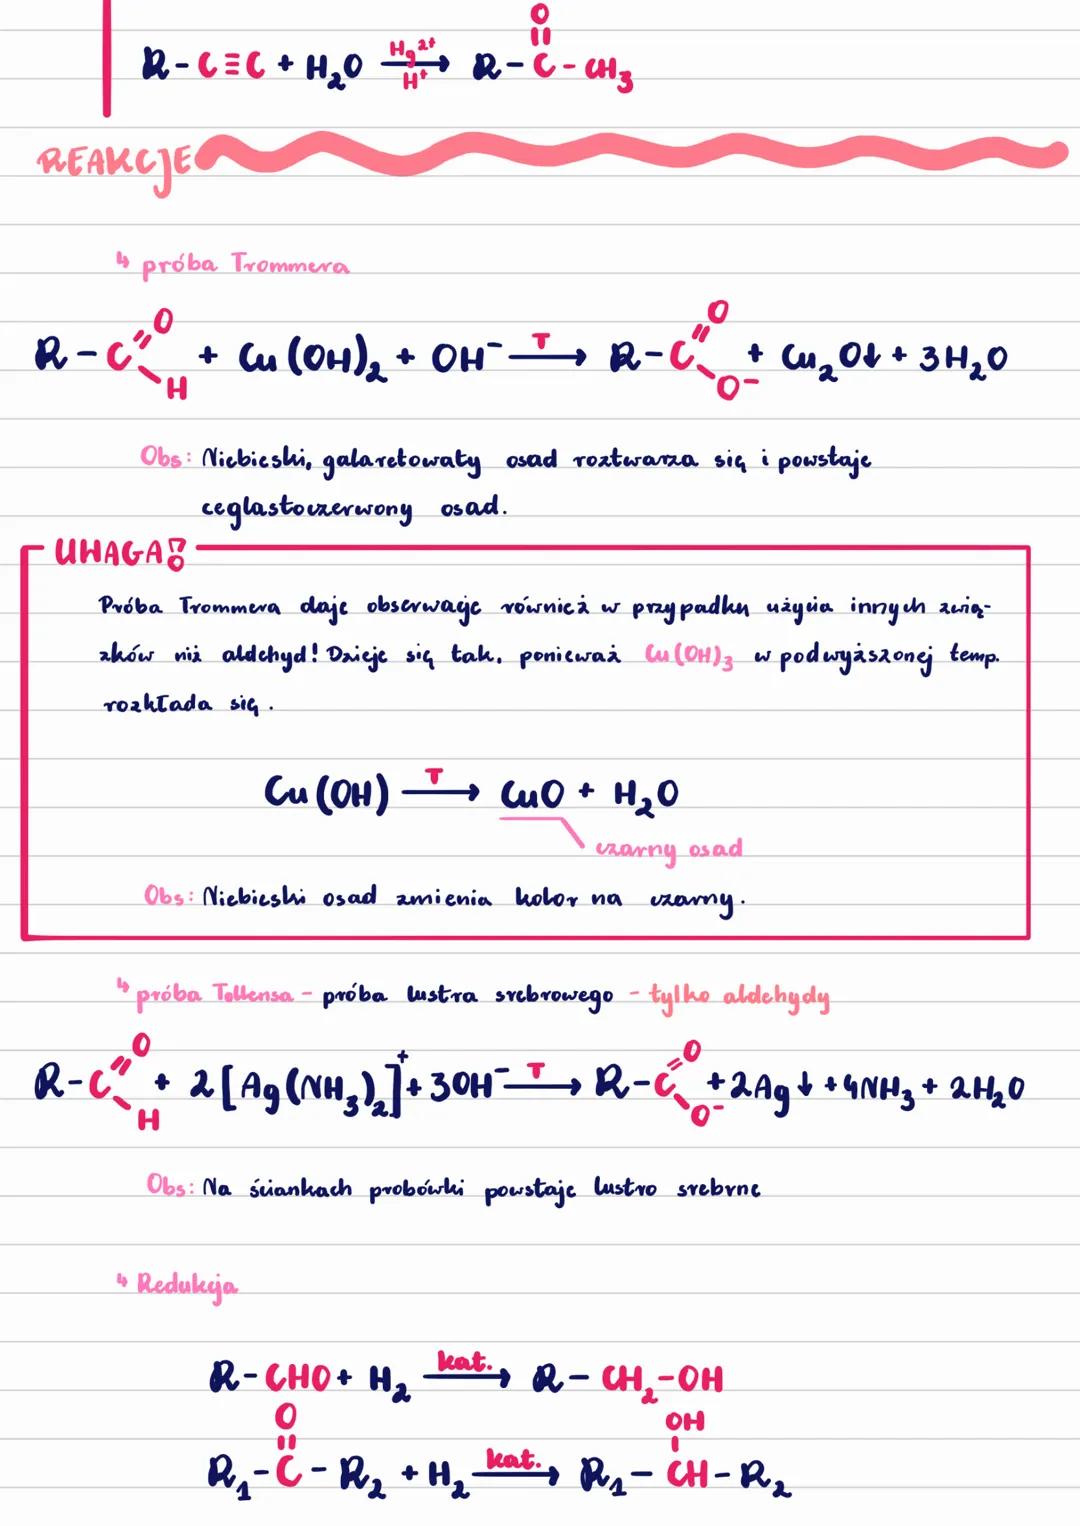 O
R-C≡C + H₂O —Hg²⁺/H⁺→ R-C-CH₃
REAKCJE
↳ próba Trommera
R-C(=O)-H + Cu(OH)₂ + OH⁻ —T→ R-C(=O)-O⁻ + Cu₂O↓ + 3H₂O
Obs: Niebieski, galaretowaty osad roztwarza się i powstaje
ceglastoczerwony osad.
UWAGA!
Próba Trommera daje obserwacje również w przypadku użycia innych zwią-
zków niż aldehyd! Dzieje się tak, ponieważ Cu(OH)₃ w podwyższonej temp.
rozkłada się.
Cu(OH) —T→ CuO + H₂O
czarny osad
Obs: Niebieski osad zmienia kolor na czarny.
↳ próba Tollensa - próba lustra srebrowego - tylko aldehydy
R-C(=O)-H + 2[Ag(NH₃)₂]⁺ + 3OH⁻ —T→ R-C(=O)-O⁻ + 2Ag↓ + 4NH₃ + 2H₂O
Obs: Na ściankach probówki powstaje lustro srebrne
↳ Redukcja
R-CHO + H₂ —kat.→ R-CH₂-OH
O OH
R₁-C-R₂ + H₂ —kat.→ R₁-CH-R₂